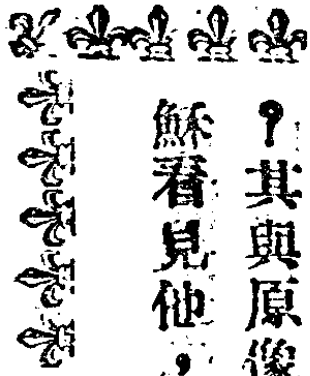 ，其與原像
穌看見他，